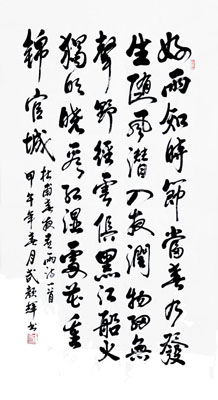 好雨知時節當春乃發
生随風潜入夜潤物細無
聲野徑雲俱黑江船火
獨明曉看紅濕處花重
錦官城
杜甫春夜喜雨詩一首
甲午年春月武